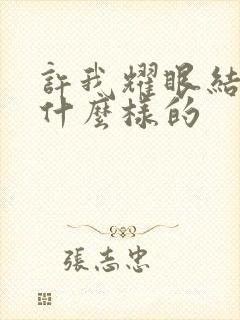 許我耀眼結
什麼樣的
張志忠